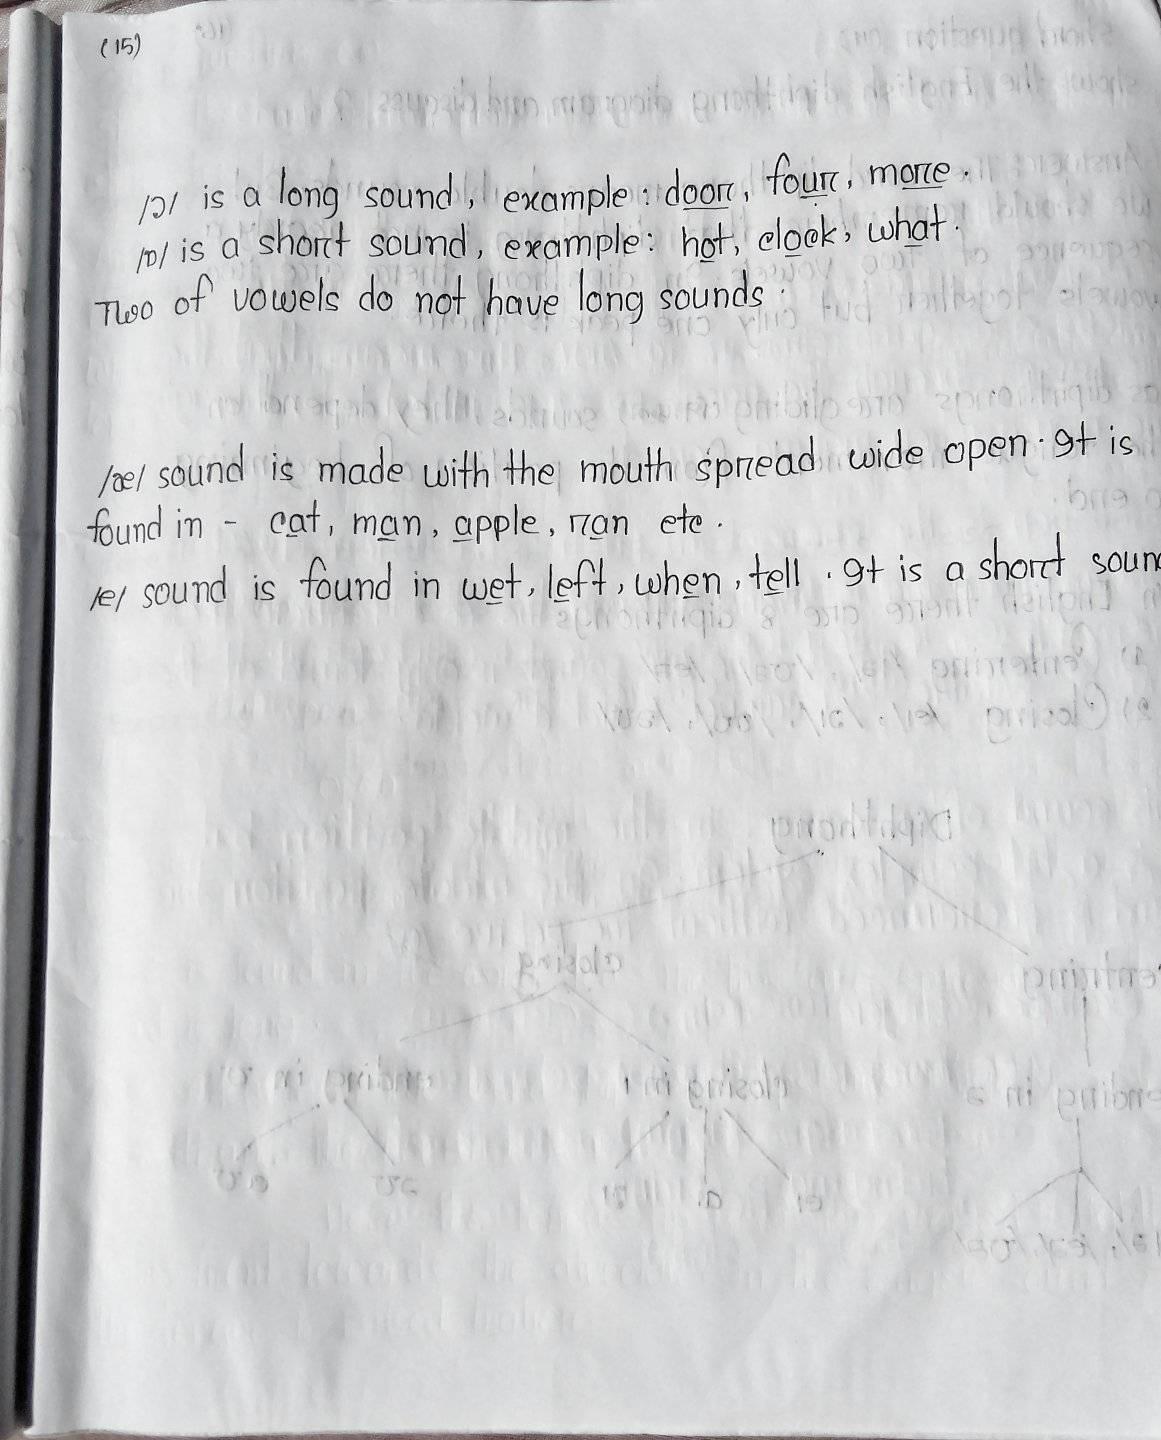 (15)
/ɔ/ is a long sound, example: door, four, more.
/ɒ/ is a short sound, example: hot, clock, what.
Two of vowels do not have long sounds.
/æ/ sound is made with the mouth spread wide open. It is
found in - cat, man, apple, ran etc.
/e/ sound is found in wet, left, when, tell. It is a short soun